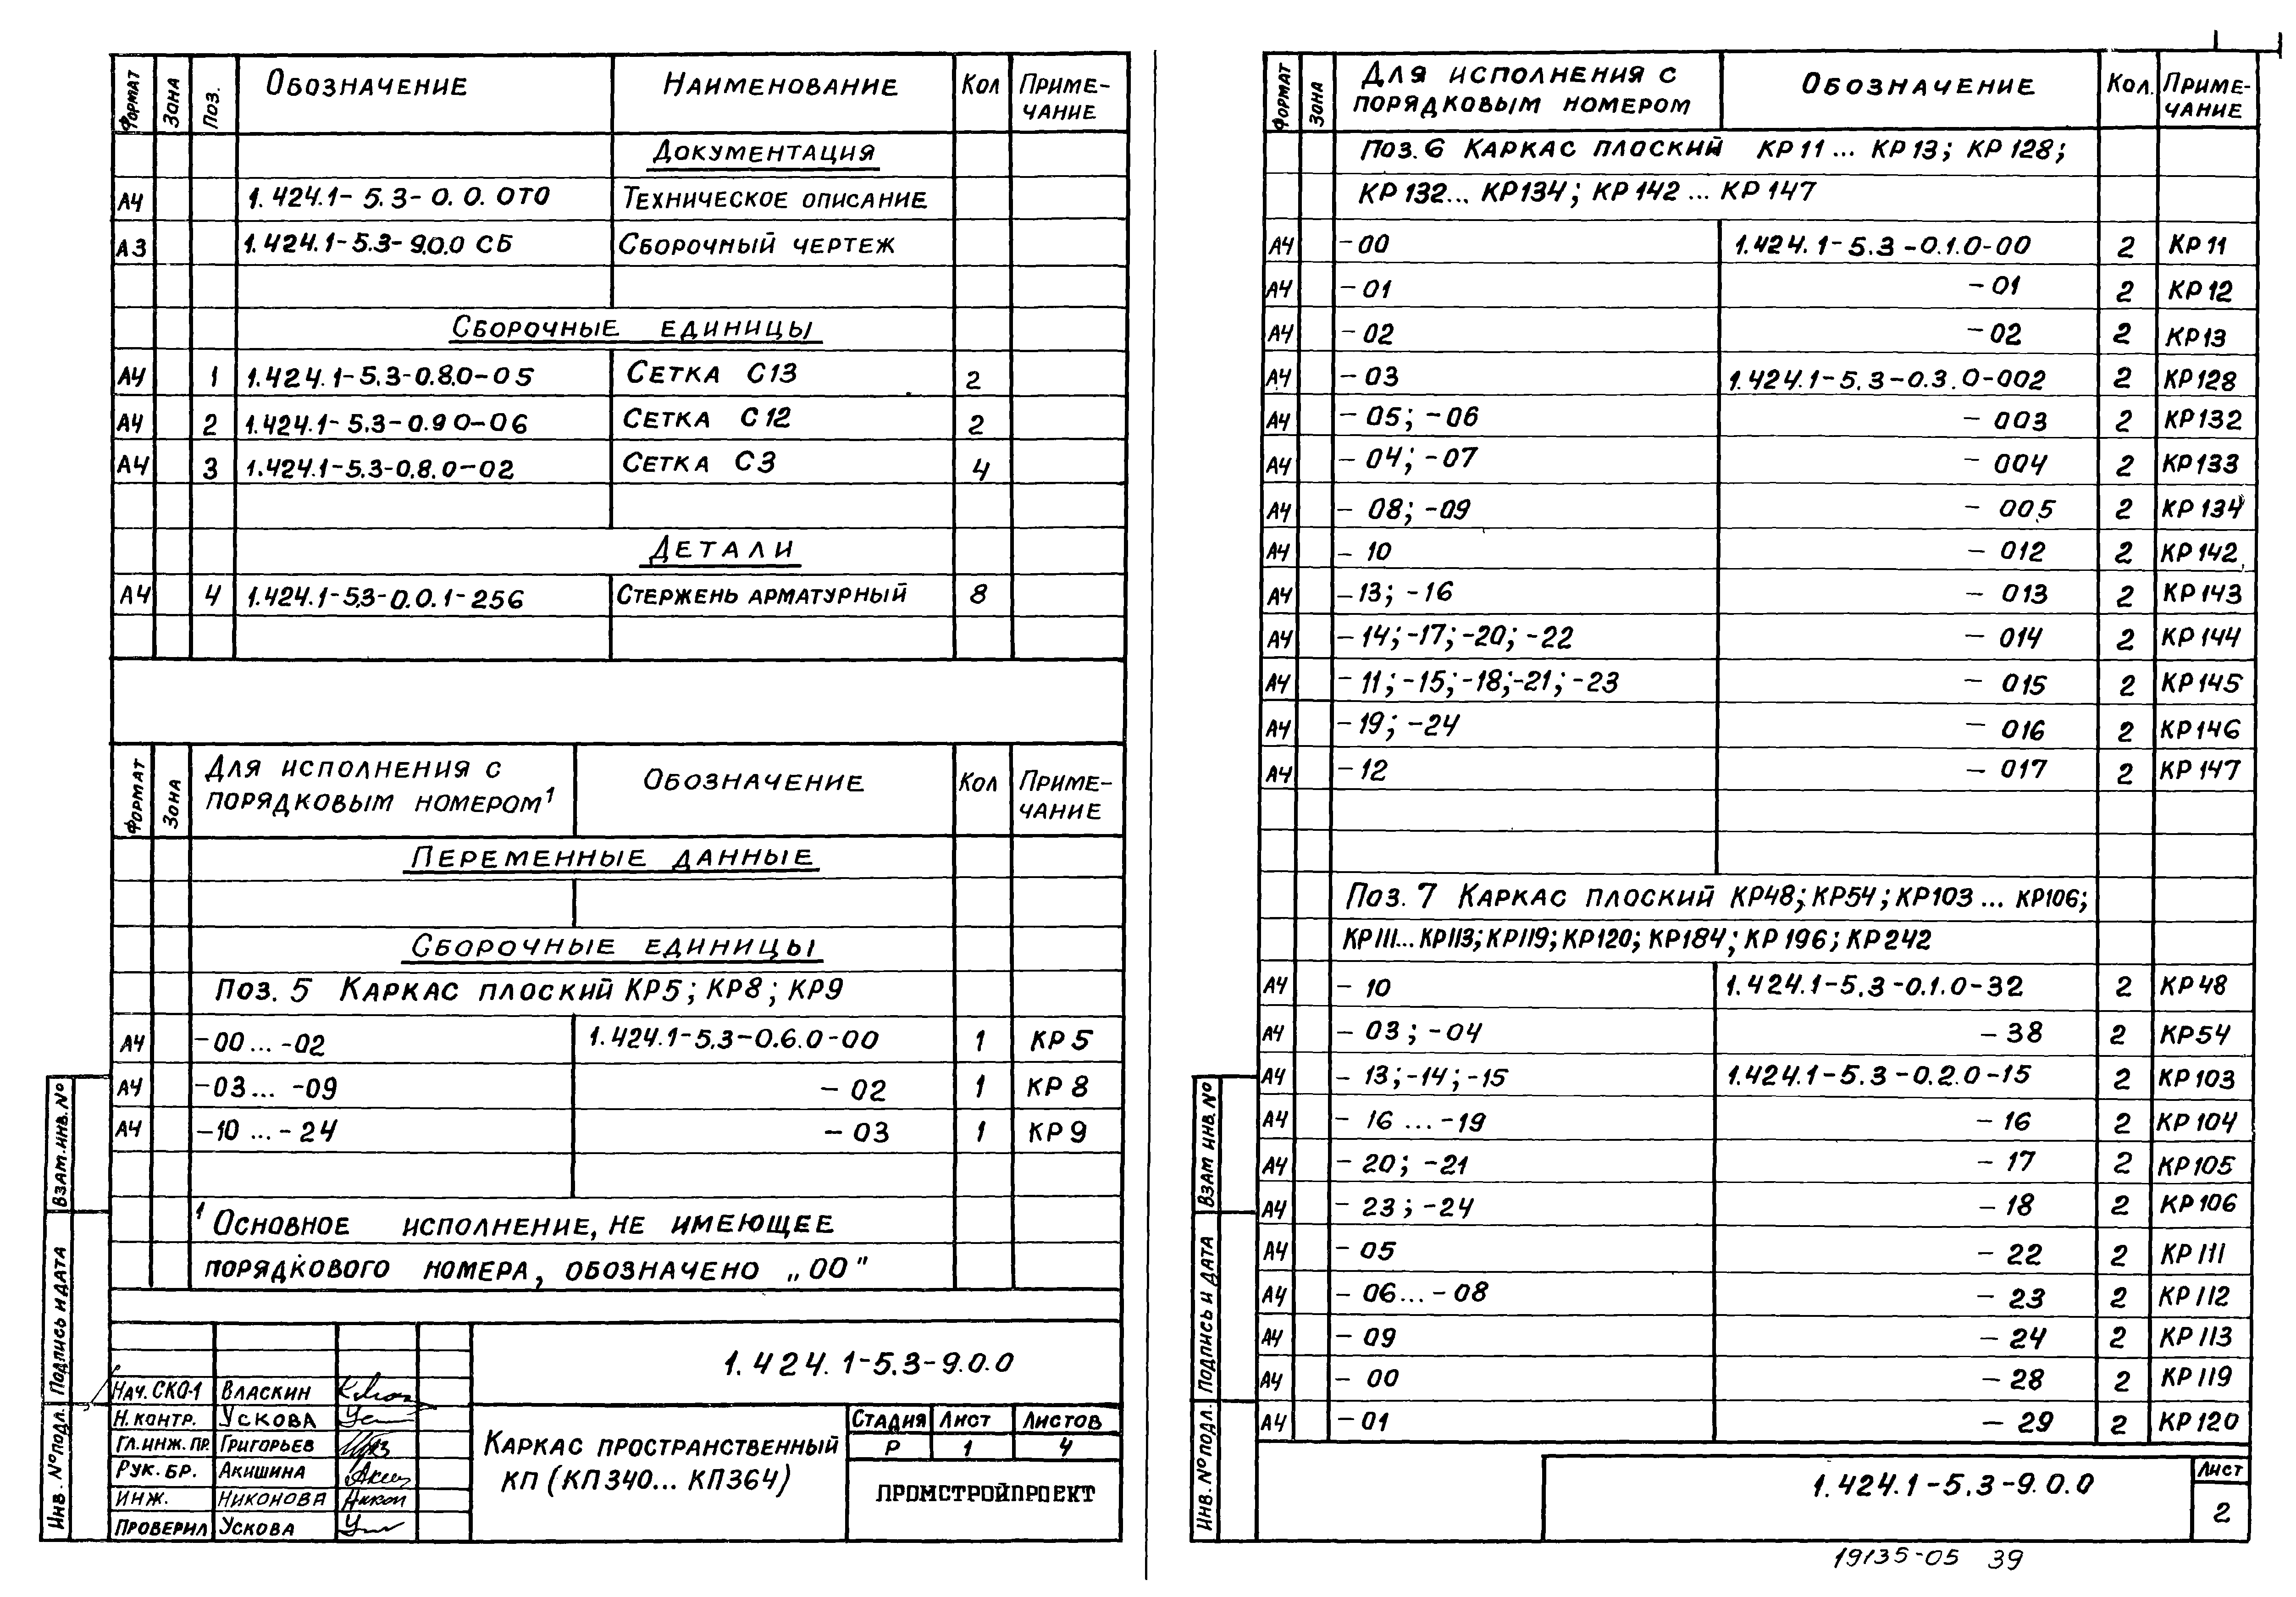 Формат Зона Поз. Обозначение Наименование Кол Приме-
чание
Документация
А4 1.424.1-5.3-0.0.0ТО Техническое описание
А3 1.424.1-5.3-9.0.0 СБ Сборочный чертеж
Сборочные единицы
А4 1 1.424.1-5.3-0.8.0-05 Сетка С13 2
А4 2 1.424.1-5.3-0.9 0-06 Сетка С12 2
А4 3 1.424.1-5.3-0.8.0-02 Сетка С3 4
Детали
А4 4 1.424.1-5.3-0.0.1-256 Стержень арматурный 8
Формат Зона Для исполнения с Обозначение Кол Приме-
порядковым номером¹ чание
Переменные данные
Сборочные единицы
Поз. 5 Каркас плоский КР5; КР8; КР9
А4 -00...-02 1.424.1-5.3-0.6.0-00 1 КР5
А4 -03...-09 -02 1 КР8
А4 -10...-24 -03 1 КР9
¹ Основное исполнение, не имеющее
порядкового номера, обозначено „00"
1.424.1-5.3-9.0.0
Нач. СКО-1 Власкин
Н.контр. Ускова
Гл.инж.пр. Григорьев
Рук. бр. Акишина
Инж. Никонова
Проверил Ускова
Каркас пространственный
КП (КП340... КП364)
Стадия Лист Листов
Р 1 4
ПРОМСТРОЙПРОЕКТ
Взам.инв.№
Подпись и дата
Инв. №подл.
Формат Зона Для исполнения с Обозначение Кол. Приме-
порядковым номером чание
Поз. 6 Каркас плоский КР11... КР13; КР128;
КР132... КР134; КР142... КР147
А4 -00 1.424.1-5.3-0.1.0-00 2 КР11
А4 -01 -01 2 КР12
А4 -02 -02 2 КР13
А4 -03 1.424.1-5.3-0.3.0-002 2 КР128
А4 -05; -06 -003 2 КР132
А4 -04; -07 -004 2 КР133
А4 -08; -09 -005 2 КР134
А4 -10 -012 2 КР142
А4 -13; -16 -013 2 КР143
А4 -14; -17; -20; -22 -014 2 КР144
А4 -11; -15; -18; -21; -23 -015 2 КР145
А4 -19; -24 -016 2 КР146
А4 -12 -017 2 КР147
Поз. 7 Каркас плоский КР48; КР54; КР103... КР106;
КР111... КР113; КР119; КР120; КР184; КР196; КР242
А4 -10 1.424.1-5.3-0.1.0-32 2 КР48
А4 -03; -04 -38 2 КР54
А4 -13; -14; -15 1.424.1-5.3-0.2.0-15 2 КР103
А4 -16...-19 -16 2 КР104
А4 -20; -21 -17 2 КР105
А4 -23; -24 -18 2 КР106
А4 -05 -22 2 КР111
А4 -06...-08 -23 2 КР112
А4 -09 -24 2 КР113
А4 -00 -28 2 КР119
А4 -01 -29 2 КР120
Взам инв. №
Подпись и дата
Инв. №подл.
1.424.1-5.3-9.0.0
Лист
2
19135-05 39